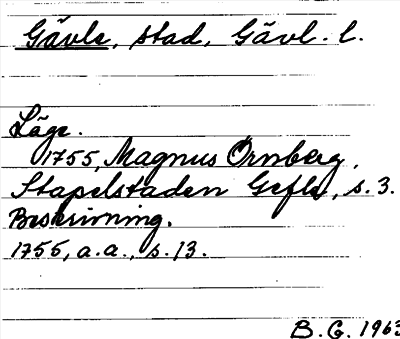 Gävle, stad, Gävl. l.
Läge.
1755, Magnus Örnberg,
Stapelstaden Gefle, s. 3.
Beskrivning.
1755, a.a., s. 13.
B. G. 1963